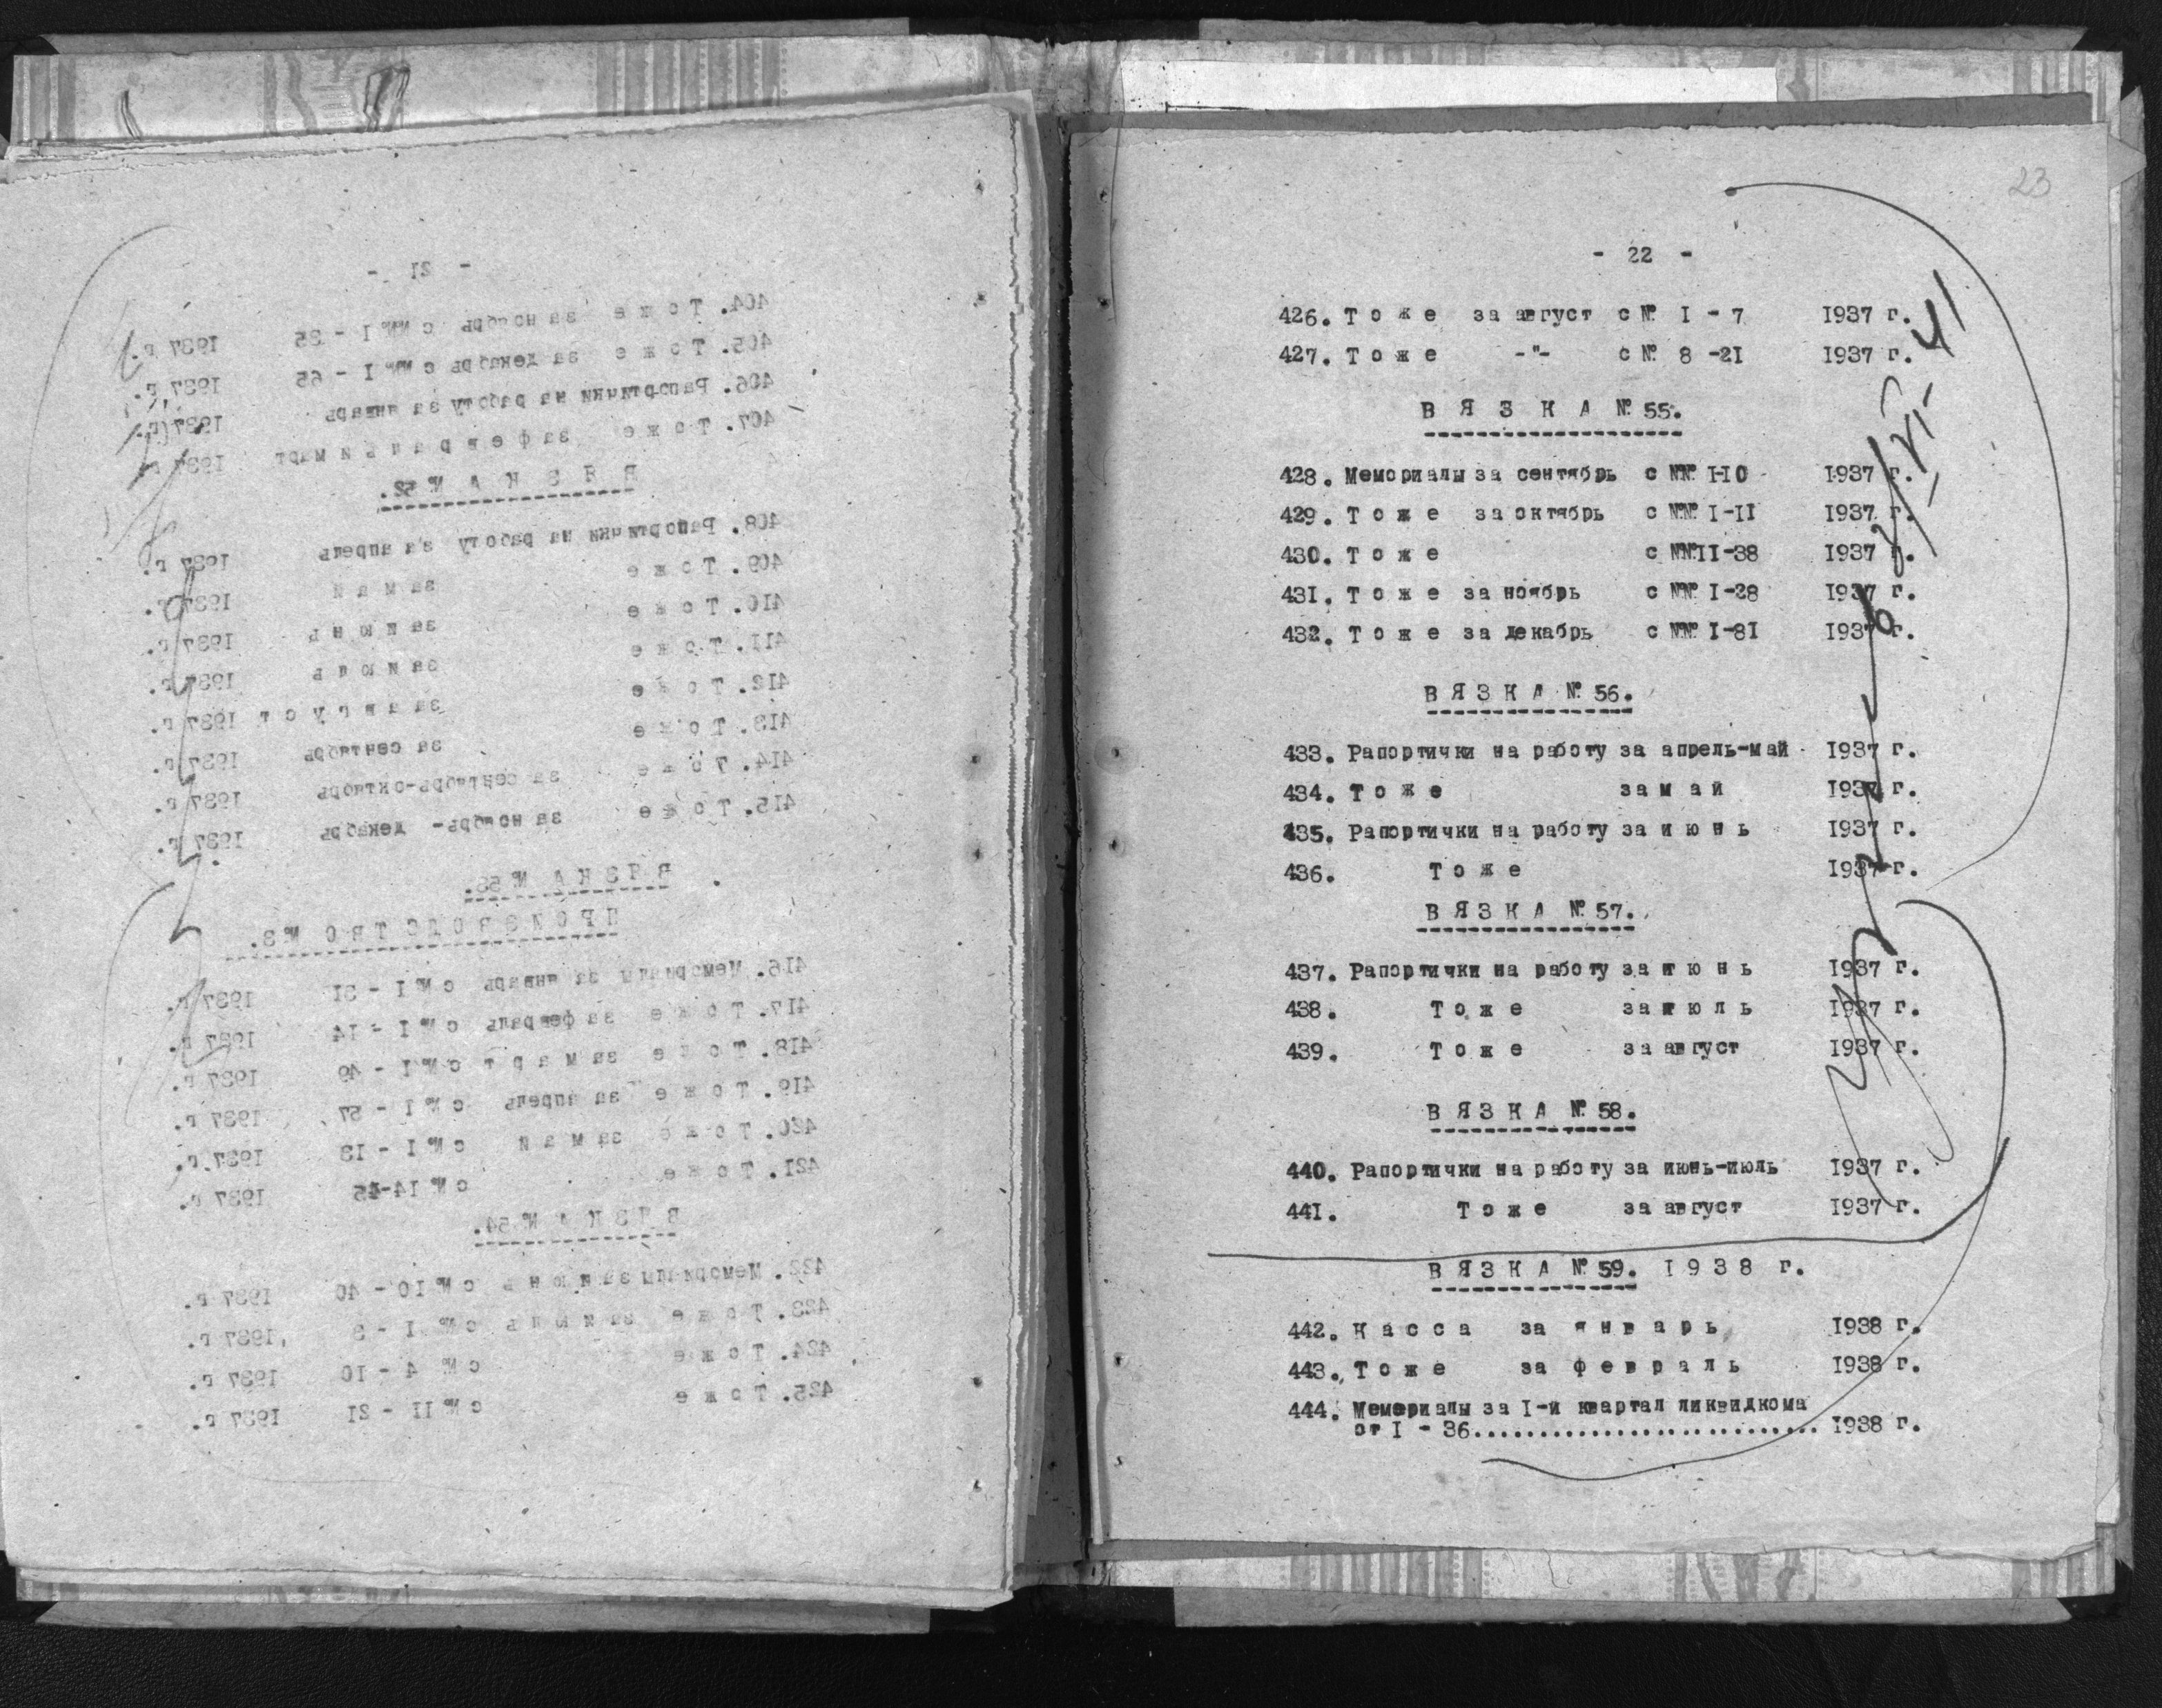 - 21 -
404. Тоже за ноябрь с №№ I - 35 1937 г.
405. Тоже за декабрь с №№ I - 65 1937 г.
406. Рапортички на работу за январь 1937 г.
407. Тоже за февраль и март 1937 г.
ВЯЗКА № 52.
408. Рапортички на работу за апрель 1937 г.
409. Тоже за май 1937 г.
410. Тоже за июнь 1937 г.
411. Тоже за июль 1937 г.
412. Тоже за август 1937 г.
413. Тоже за сентябрь 1937 г.
414. Тоже за сентябрь-октябрь 1937 г.
415. Тоже за ноябрь- декабрь 1937 г.
ВЯЗКА № 53.
ПРОИЗВОДСТВО № 3.
416. Мемориалы за январь с № I - 31 1937 г.
417. Тоже за февраль с № I - 14 1937 г.
418. Тоже за март с № I - 49 1937 г.
419. Тоже за апрель с № I - 57 1937 г.
420. Тоже за май с № I - 13 1937 г.
421. Тоже с № 14-45 1937 г.
ВЯЗКА № 54.
422. Мемориалы за июнь с № 10 - 40 1937 г.
423. Тоже за июль с № I - 3 1937 г.
424. Тоже с № 4 - 10 1937 г.
425. Тоже с № II - 21 1937 г.
23
- 22 -
426. Тоже за август с № I - 7 1937 г.
427. Тоже -"- с № 8 -21 1937 г.
ВЯЗКА № 55.
428. Мемориалы за сентябрь с №№ I-10 1937 г.
429. Тоже за октябрь с №№ I-II 1937 г.
430. Тоже с №№ II-38 1937 г.
431. Тоже за ноябрь с №№ I-28 1937 г.
432. Тоже за декабрь с №№ I-81 1937 г.
ВЯЗКА № 56.
433. Рапортички на работу за апрель-май 1937 г.
434. Тоже за май 1937 г.
435. Рапортички на работу за июнь 1937 г.
436. Тоже 1937 г.
ВЯЗКА № 57.
437. Рапортички на работу за июнь 1937 г.
438. Тоже за июль 1937 г.
439. Тоже за август 1937 г.
ВЯЗКА № 58.
440. Рапортички на работу за июнь-июль 1937 г.
441. Тоже за август 1937 г.
ВЯЗКА № 59. 1938 г.
442. Касса за январь 1938 г.
443. Тоже за февраль 1938 г.
444. Мемориалы за I-й квартал ликвидкома
от I - 36........................... 1938 г.